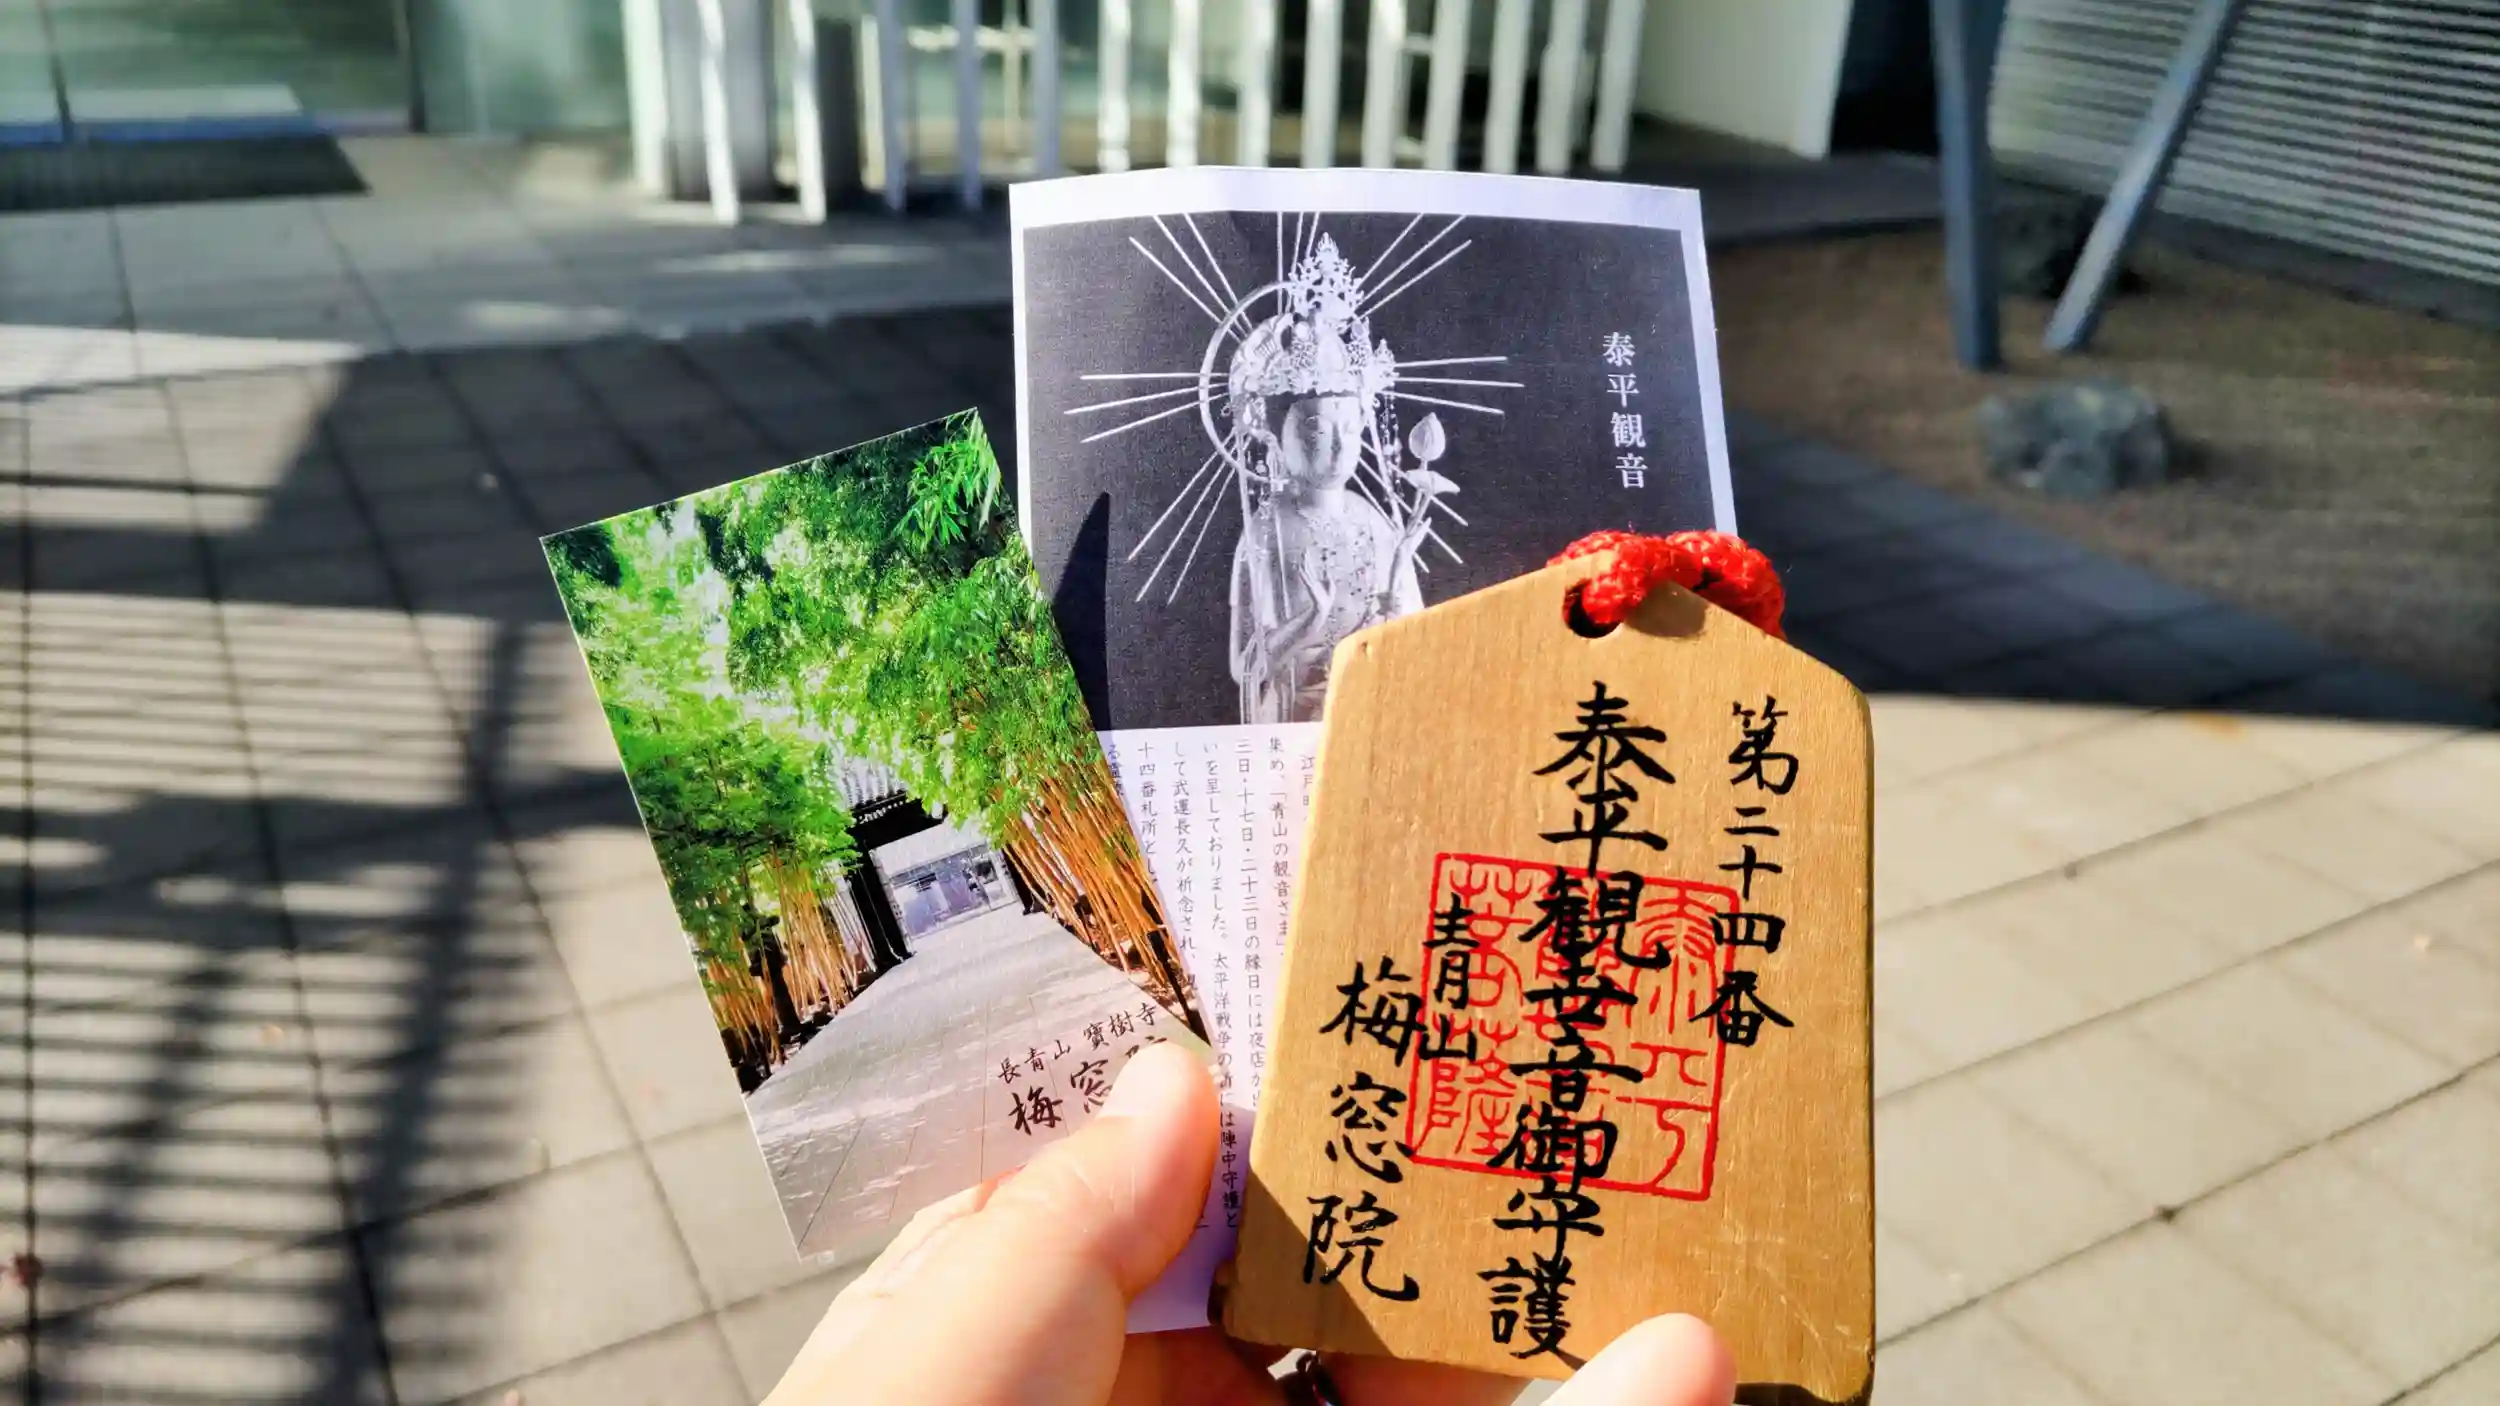 泰平観音
江戸時
集め、「青山の観音さま」
三日・十七日・二十三日の縁日には夜店が出
いを呈しておりました。太平洋戦争の
には陣中守護と
して武運長久が祈念され、
十四番札所とし
長青山 寶樹寺
梅窓院
第二十四番
泰平観世音御守護
青山
梅窓院